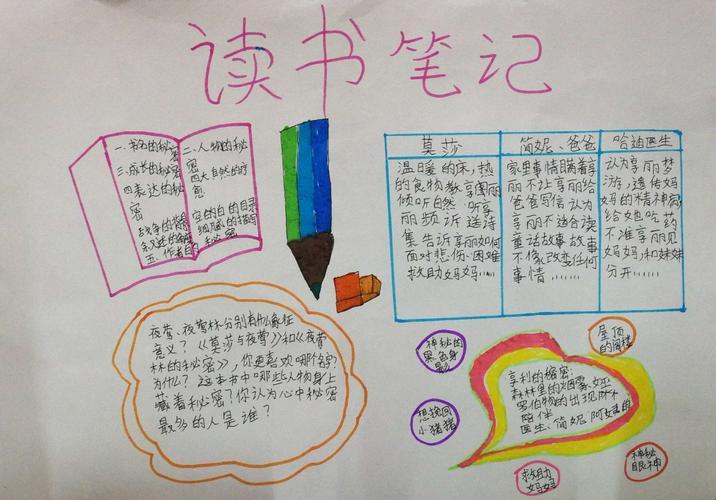 读书笔记
一.书名的秘密
三.成长的秘密
四表达的秘密
战争的背景
五.作者
二.人物的秘密
四大自然的疗愈
莫莎
温暖的床,热
的食物教享丽
倾听自然.听享
丽倾诉送诗
集告诉享丽如何
面对悲伤.困难
救助妈妈……
简妮、爸爸
家里事情瞒着享
丽不让享丽给
爸爸写信认为
享丽不适合读
童话故事故事
不像改变任何
事情,……
哈迪医生
认为享丽梦
游,遗传妈
妈的精神病
给她吃药
不准享丽见
妈妈,和妹妹
分开……
夜莺、夜莺林分别有什么象征
意义?《莫莎与夜莺》和《夜莺
林的秘密》,你更喜欢哪个名字?
为什么?这本书中哪些人物身上
藏着秘密?你认为心中秘密
最多的人是谁?
神秘的
黑色身
影
屋顶
的阁楼
想换回
小猪猪
享利的秘密:
森林里的烟雾、
的出现
陪伴
医生、简妮
救助
妈妈
神秘
眼神